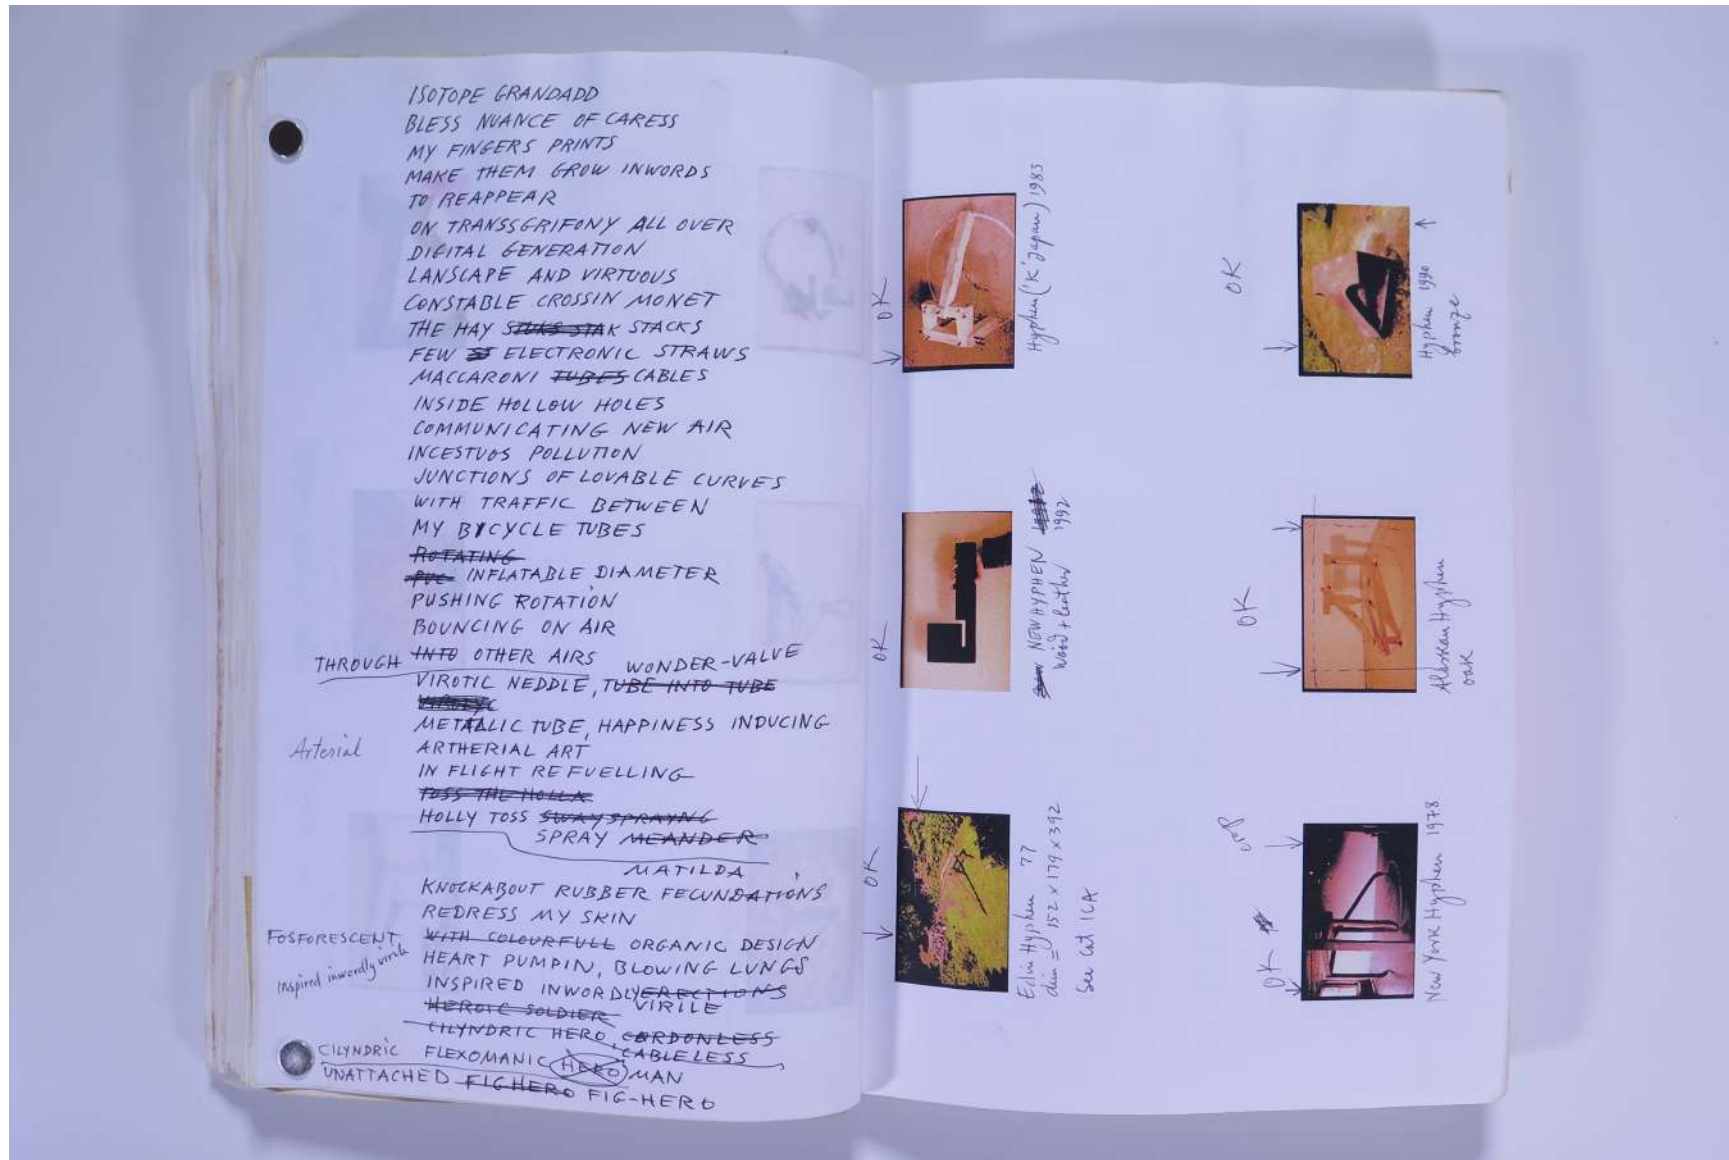 ISOTOPE GRANDADD
BLESS NUANCE OF CARESS
MY FINGERS PRINTS
MAKE THEM GROW INWORDS
TO REAPPEAR
ON TRANSSGRIFONY ALL OVER
DIGITAL GENERATION
LANSCAPE AND VIRTUOUS
CONSTABLE CROSSIN MONET
THE HAY STAK STACKS
FEW ELECTRONIC STRAWS
MACCARONI TUBES CABLES
INSIDE HOLLOW HOLES
COMMUNICATING NEW AIR
INCESTUOS POLLUTION
JUNCTIONS OF LOVABLE CURVES
WITH TRAFFIC BETWEEN
MY BYCYCLE TUBES
ROTATING
PVC INFLATABLE DIAMETER
PUSHING ROTATION
BOUNCING ON AIR
THROUGH INTO OTHER AIRS WONDER-VALVE
VIROTIC NEDDLE, TUBE INTO TUBE
METALLIC TUBE, HAPPINESS INDUCING
Arterial ARTHERIAL ART
IN FLIGHT REFUELLING
TOSS THE HOLLA
HOLLY TOSS SWAY SPRAYNG
SPRAY MEANDER
MATILDA
KNOCKABOUT RUBBER FECUNDATIONS
REDRESS MY SKIN
FOSFORESCENT WITH COLOURFULL ORGANIC DESIGN
HEART PUMPIN, BLOWING LUNGS
Inspired inwordly virile INSPIRED INWORDLY ERECTIONS
HEROIC SOLDIER VIRILE
CILYNDRIC HERO, CORDONLESS
CILYNDRIC FLEXOMANIC HERO MAN CABLELESS
UNATTACHED FIGHERO FIG-HERO
OK
Hyphen ('K' Japan) 1983
OK
Hyphen 1990
bronze
OK
NEW HYPHEN 1992
wood + leather
OK
Alaskan Hyphen
oak
OK
Edin Hyphen 77
dim = 152 x 179 x 392
See Cat ICA
OK
crop
New York Hyphen 1978